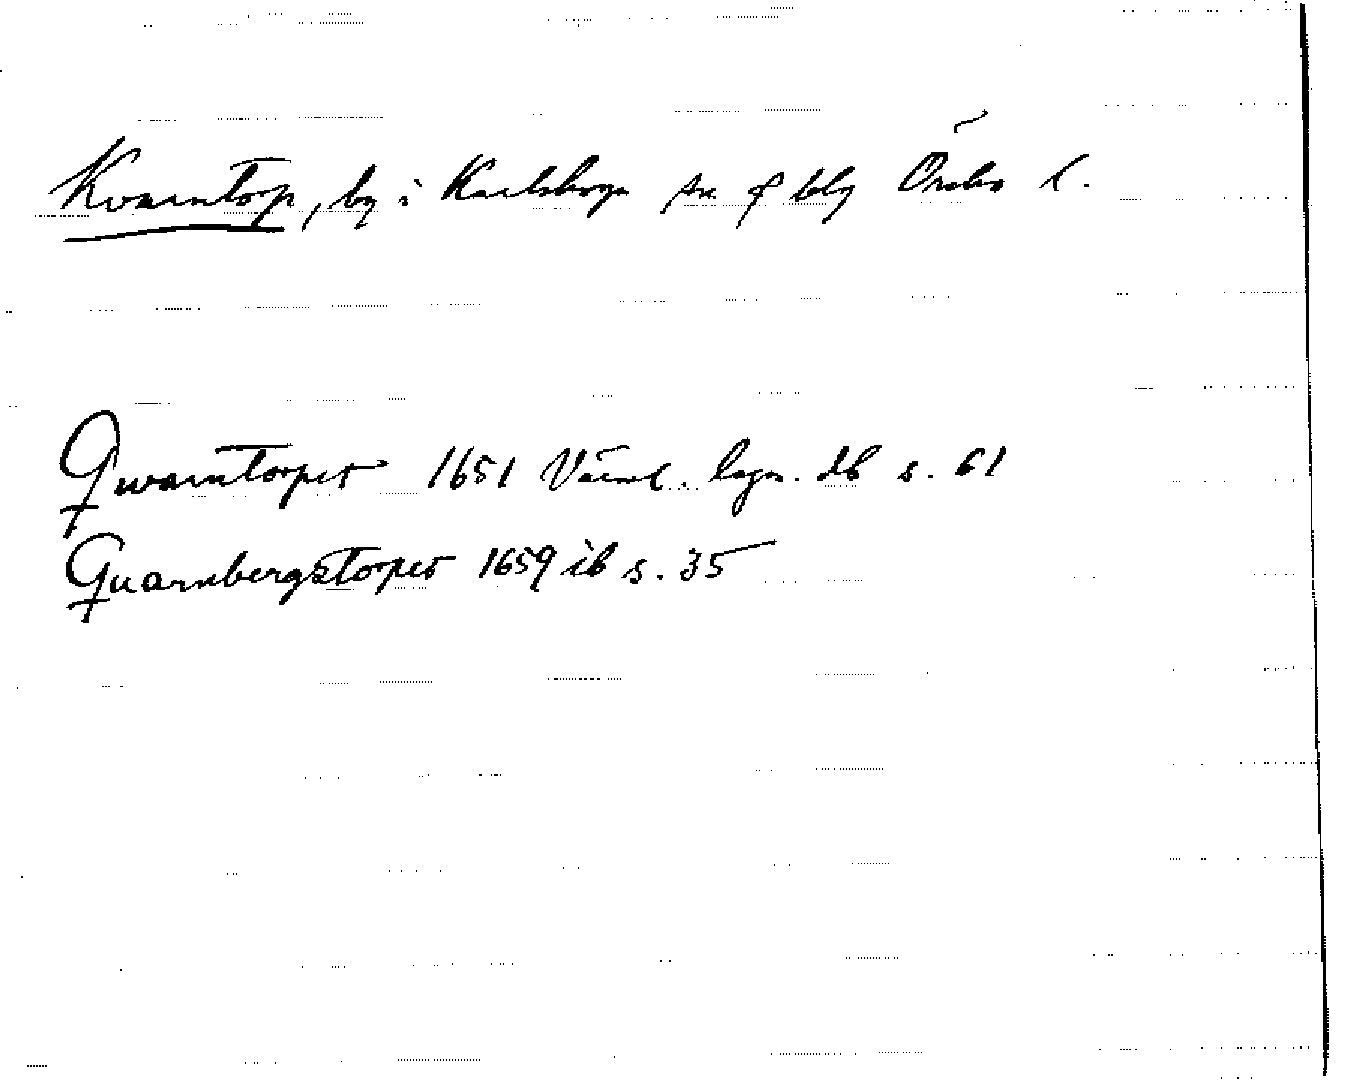 Kvarntorp, by i Karlskoga sn o blg Örebro l.
Qwarntorpet 1651 Värml. lagn. db s. 61
Quarnbergstorpet 1659 ib s. 35